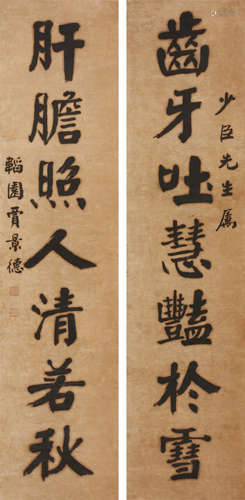 齒牙吐慧豔於雪
少臣先生屬
肝膽照人清若秋
韜園賈景德